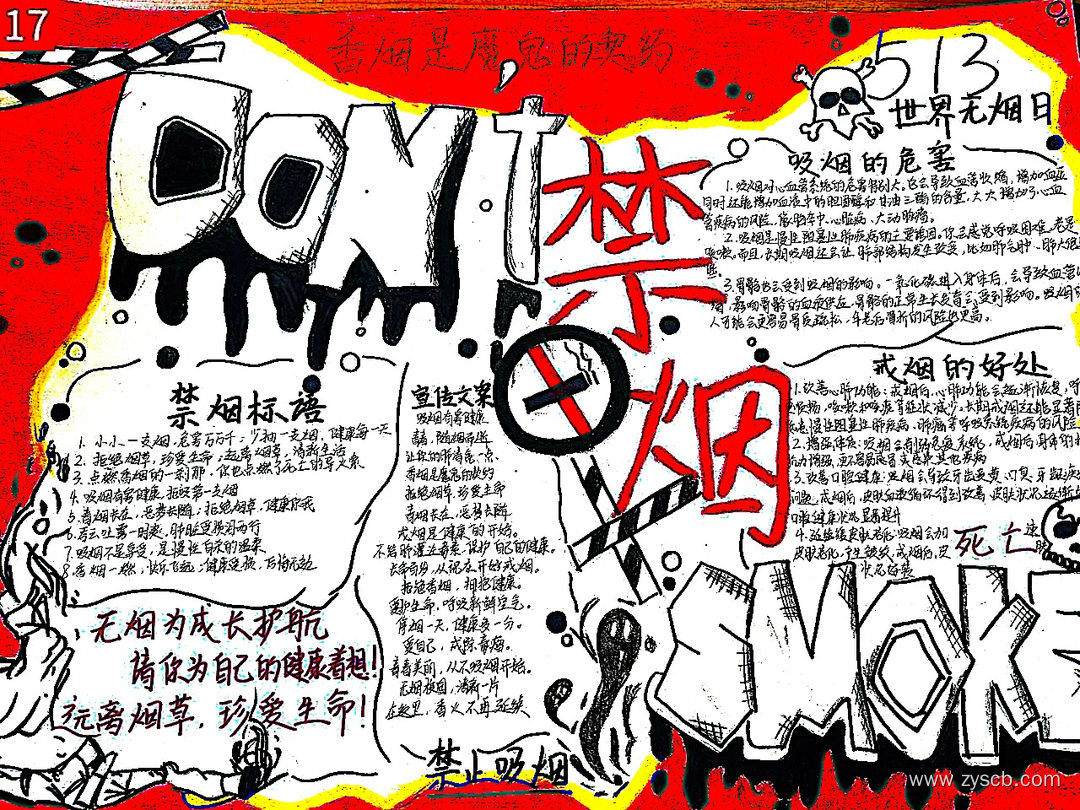 17
香烟是魔鬼的契约
DON'T
禁烟
513
世界无烟日
吸烟的危害
1.吸烟对心血管系统的危害特别大。它会导致血管收缩,增加血压
同时还能增加血液中的胆固醇和甘油三酯的含量,大大增加了心血
管疾病的风险,像脑卒中、心脏病、大动脉瘤。
2.吸烟是慢性阻塞性肺疾病的主要诱因,你会感觉呼吸困难,老是
咳嗽,而且,长期吸烟还会让肺部结构发生改变,比如肺气肿、肺大疱
3.骨骼也会受到吸烟的影响。一氧化碳进入身体后,会导致血管
影响骨骼的血液供应,骨骼的正常生长发育会受到影响。吸烟的
人可能会更容易骨质疏松,年老后骨折的风险也更高。
戒烟的好处
1.改善心肺功能:戒烟后,心肺功能会逐渐恢复,呼
咳嗽和呼吸音症状减少。长期戒烟还能显著
低患慢性阻塞性肺疾病、肺癌等呼吸系统疾病的风险
2.增强体质:吸烟会削弱免疫系统,戒烟后身体的
抗力增强,更不容易感冒
3.改善口腔健康:吸烟会导致牙齿变黄、口臭、牙龈
问题,戒烟后,
口腔健康状况显著提升
4.延缓皮肤老化:吸烟会加
皮肤老化,产生皱纹,戒烟后,皮
状况好转
死亡
禁烟标语
1.小小一支烟,危害万万千;少抽一支烟,健康每一天
2.拒绝烟草,珍爱生命;远离烟草,清新生活
3.点燃香烟的一刹那,你也点燃了死亡的导火索
4.吸烟有害健康,拒绝第一支烟
5.香烟长在,恶梦长随,拒绝烟草,健康你我
6.吞云吐雾一时爽,肺脏受损泪两行
7.吸烟不是享受,是慢性自杀的温床
8.香烟一燃,快乐飞远,健康受损,
宣传文案
吸烟有害健康
让你的肺清爽一点
香烟是魔鬼的契约
拒绝烟草,珍爱生命
香烟长在,恶梦长随
戒烟是健康的开始。
不给肺灌注毒素,保护自己的健康。
长命百岁,从现在开始戒烟。
拒绝香烟,拥抱健康
生命,呼吸新鲜空气。
停烟一天,健康多一分。
爱自己,戒除毒瘾。
青春美丽,从不吸烟开始。
无烟校园,清新一片
在这里,香火不再延续
无烟为成长护航
请你为自己的健康着想!
远离烟草,珍爱生命!
禁止吸烟
SMOKE
www.zyscb.com